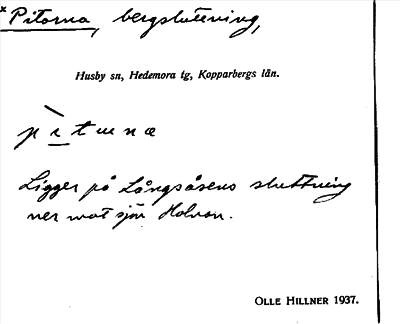 × Pitorna, bergsluttning,
Husby sn, Hedemora tg, Kopparbergs län.
Ligger på Långsåsens sluttning
ner mot sjön Holvon.
OLLE HILLNER 1937.